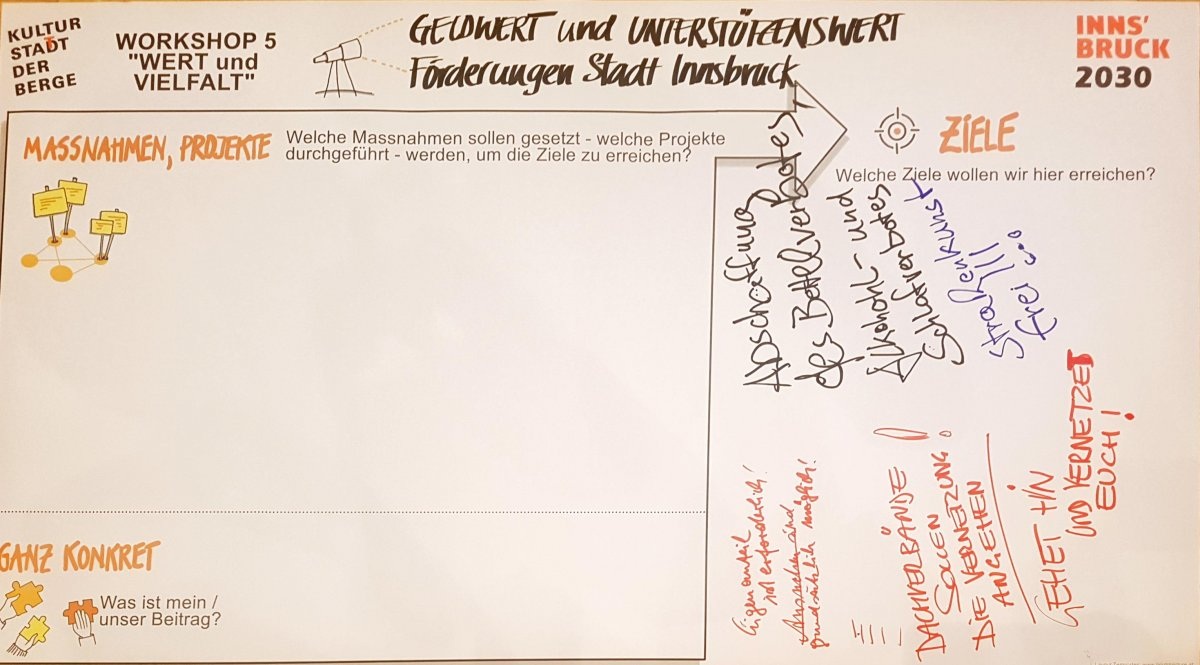 KULTUR
STADT
DER
BERGE
WORKSHOP 5
"WERT und
VIELFALT"
GELDWERT und UNTERSTÜTZENSWERT
Förderungen Stadt Innsbruck
INNS'
BRUCK
2030
MASSNAHMEN, PROJEKTE
Welche Massnahmen sollen gesetzt - welche Projekte
durchgeführt - werden, um die Ziele zu erreichen?
ZIELE
Welche Ziele wollen wir hier erreichen?
Abschaffung
des Bettelverbotes,
Alkohohl- und
Schlafverbotes
Straßenkunst
frei!!!
Eigenanteil
ist erforderlich!
Ausnahmen sind
grundsätzlich möglich!
DACHVERBÄNDE
SOLLEN
DIE VERNETZUNG!
ANGEHEN
GEHET HIN
UND VERNETZET
EUCH!
GANZ KONKRET
Was ist mein /
unser Beitrag?